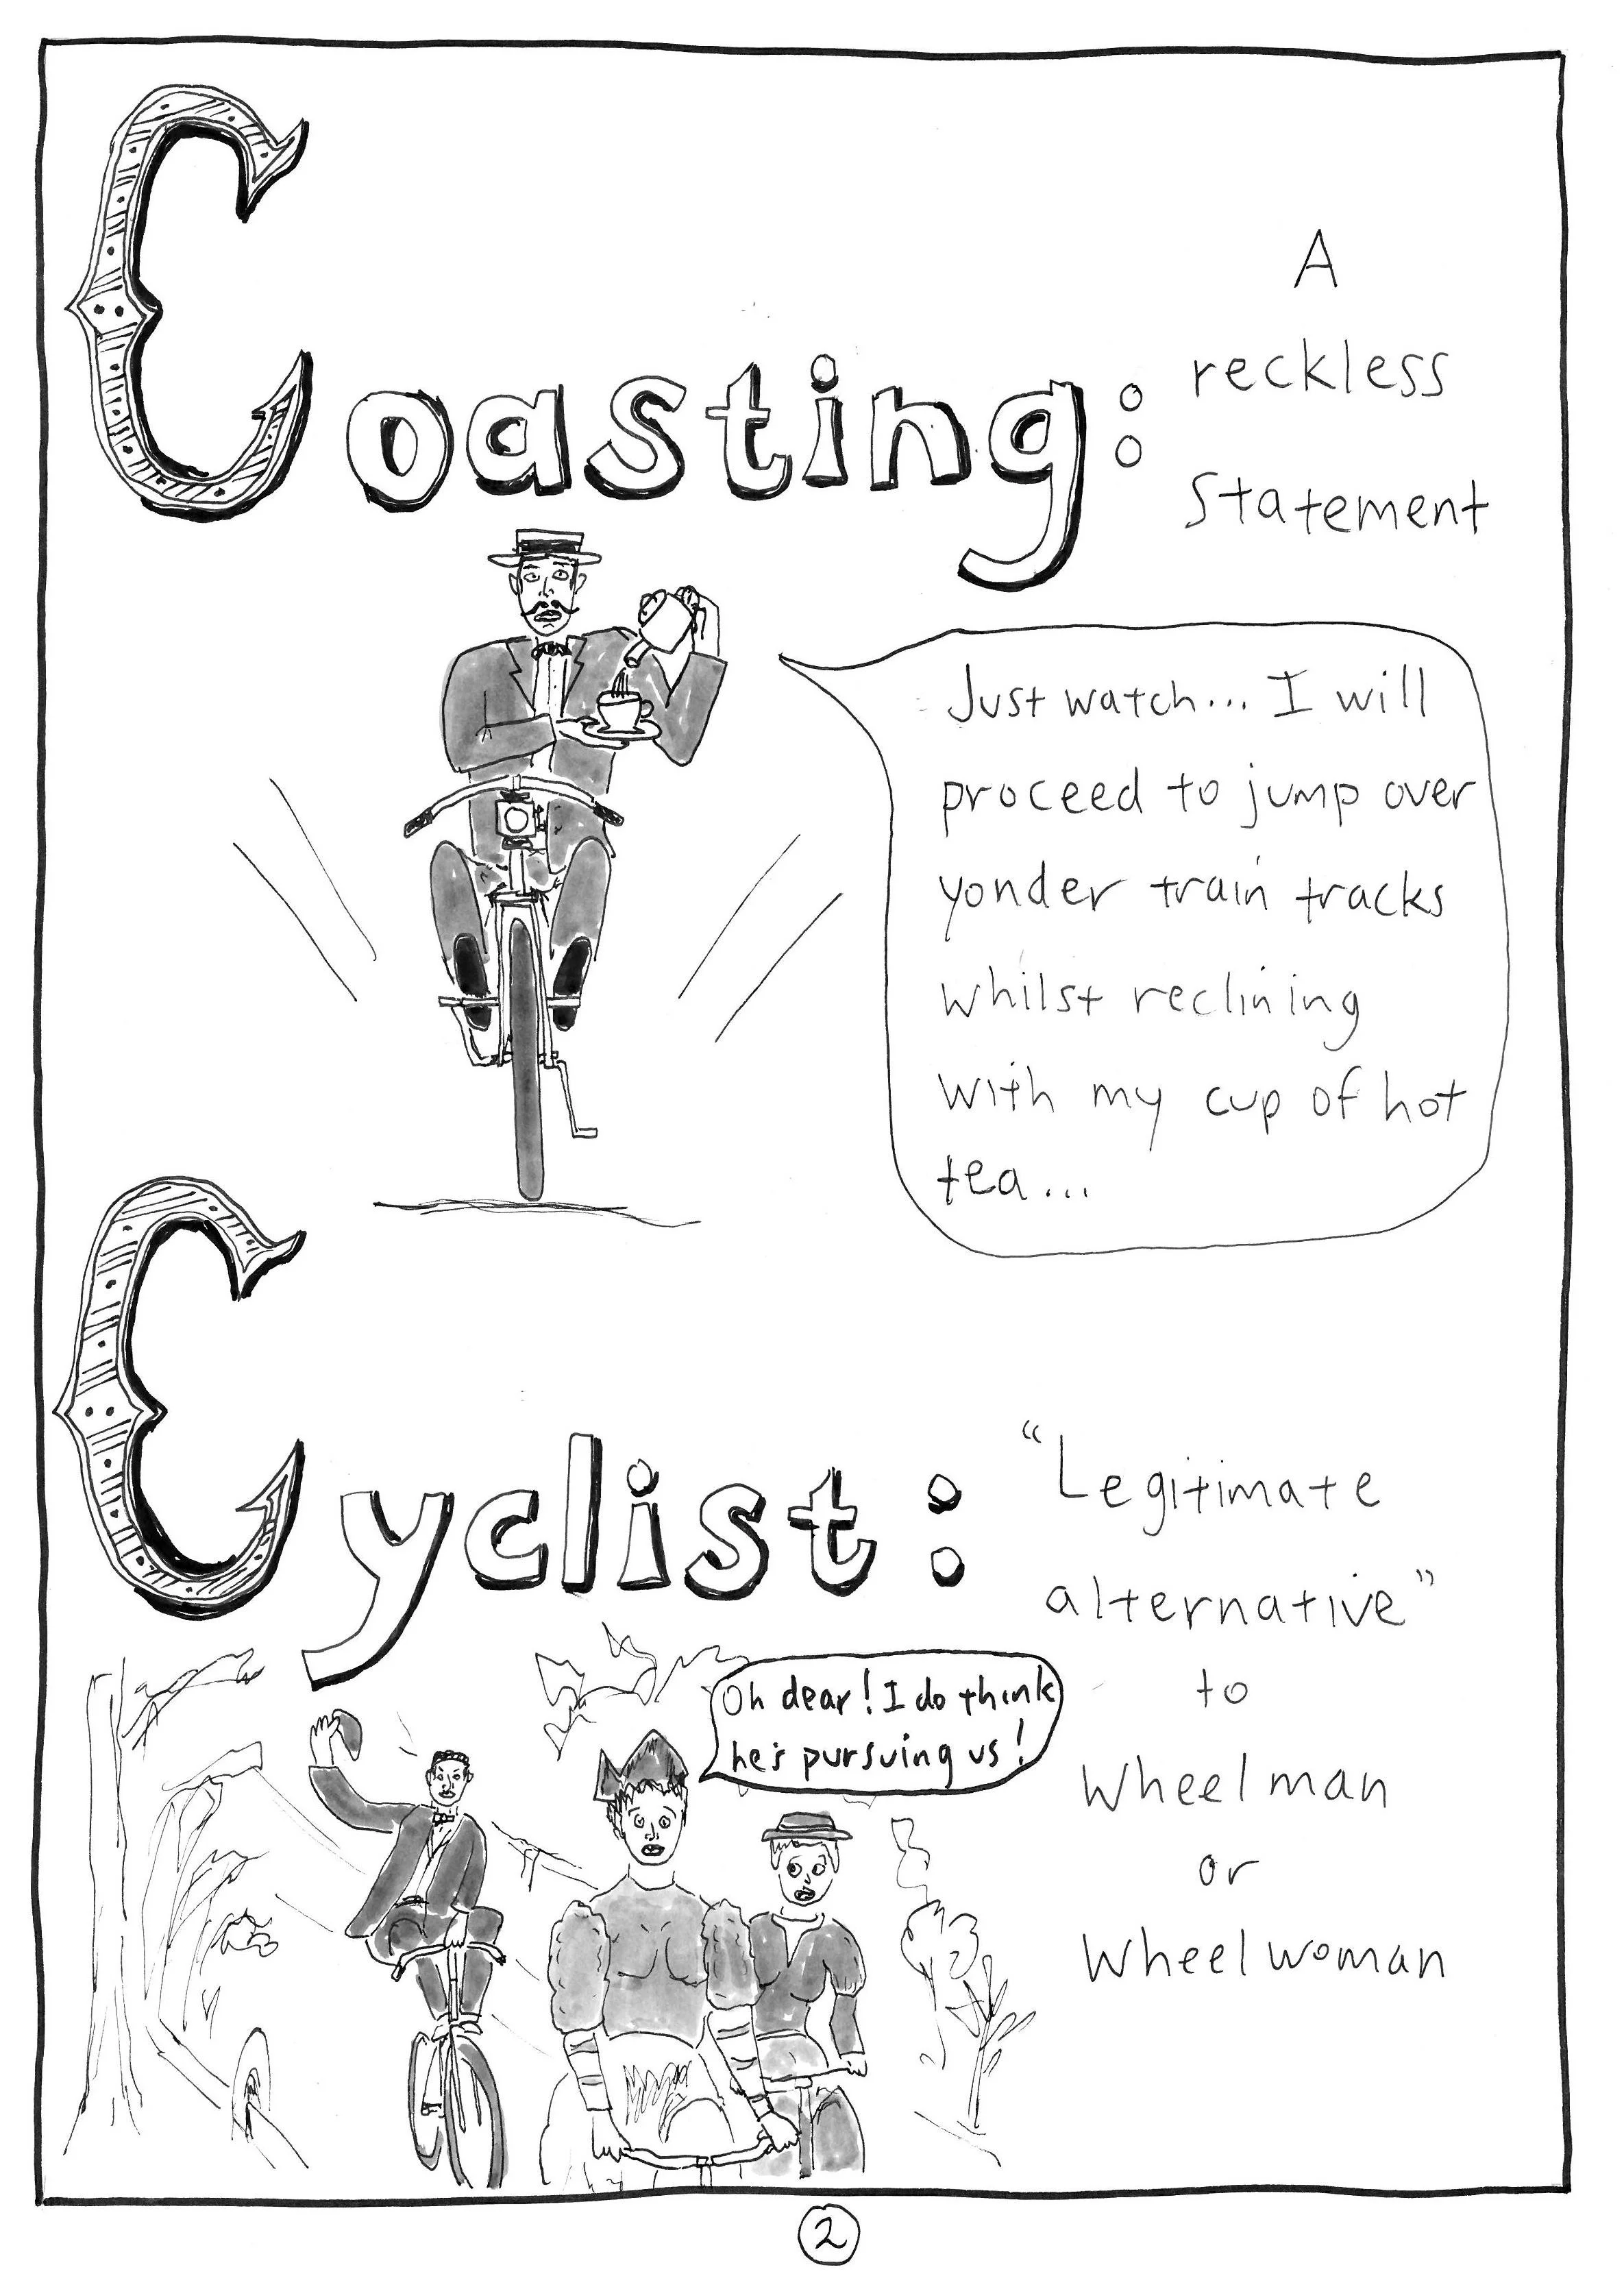 Coasting:
A
reckless
Statement
Just watch... I will
proceed to jump over
yonder train tracks
whilst reclining
with my cup of hot
tea...
Cyclist:
"Legitimate
alternative"
to
Wheelman
or
Wheelwoman
Oh dear! I do think
he's pursuing us!
2